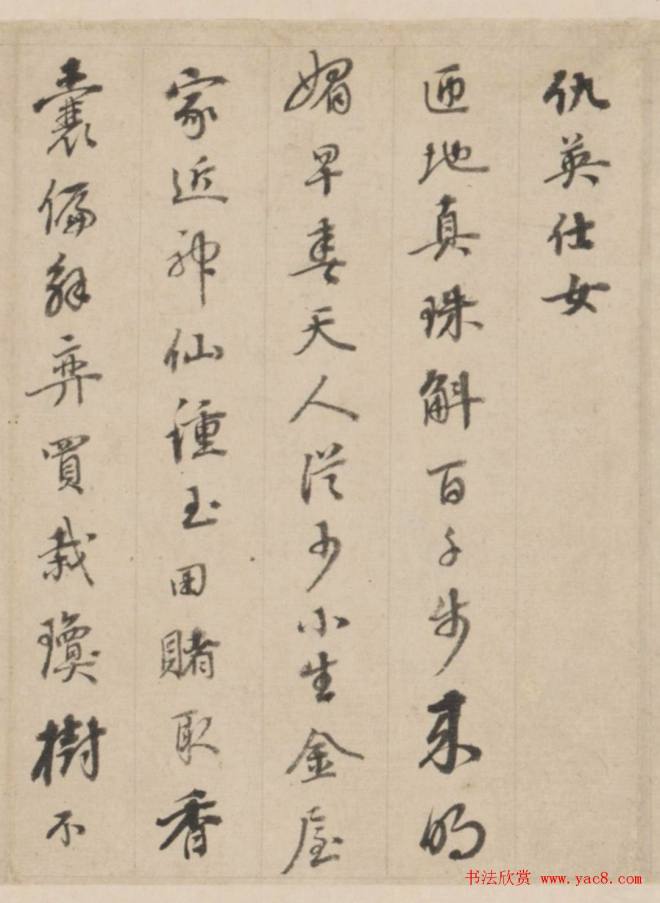 仇英仕女
迊地真珠斛百千步来明
媚早春天人従少小生金屋
家近神仙種玉田賭取香
囊偏解弈買栽瓊樹不
书法欣赏 www.yac8.com